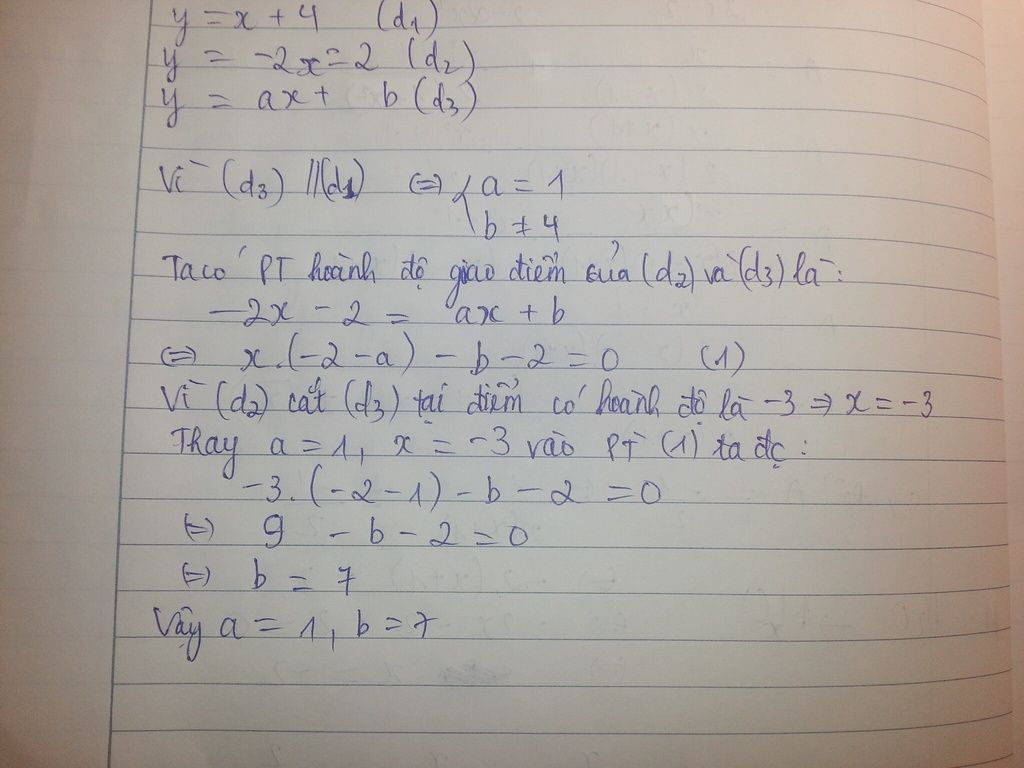 y = x + 4 (d1)
y = -2x = 2 (d2)
y = ax + b (d3)
Vì (d3) // (d1) <=> { a = 1
b ≠ 4
Ta có PT hoành độ giao điểm của (d2) và (d3) là:
-2x - 2 = ax + b
<=> x.(-2-a) - b - 2 = 0 (1)
Vì (d2) cắt (d3) tại điểm có hoành độ là -3 => x = -3
Thay a = 1, x = -3 vào PT (1) ta đc:
-3.(-2-1) - b - 2 = 0
<=> 9 - b - 2 = 0
<=> b = 7
Vậy a = 1, b = 7